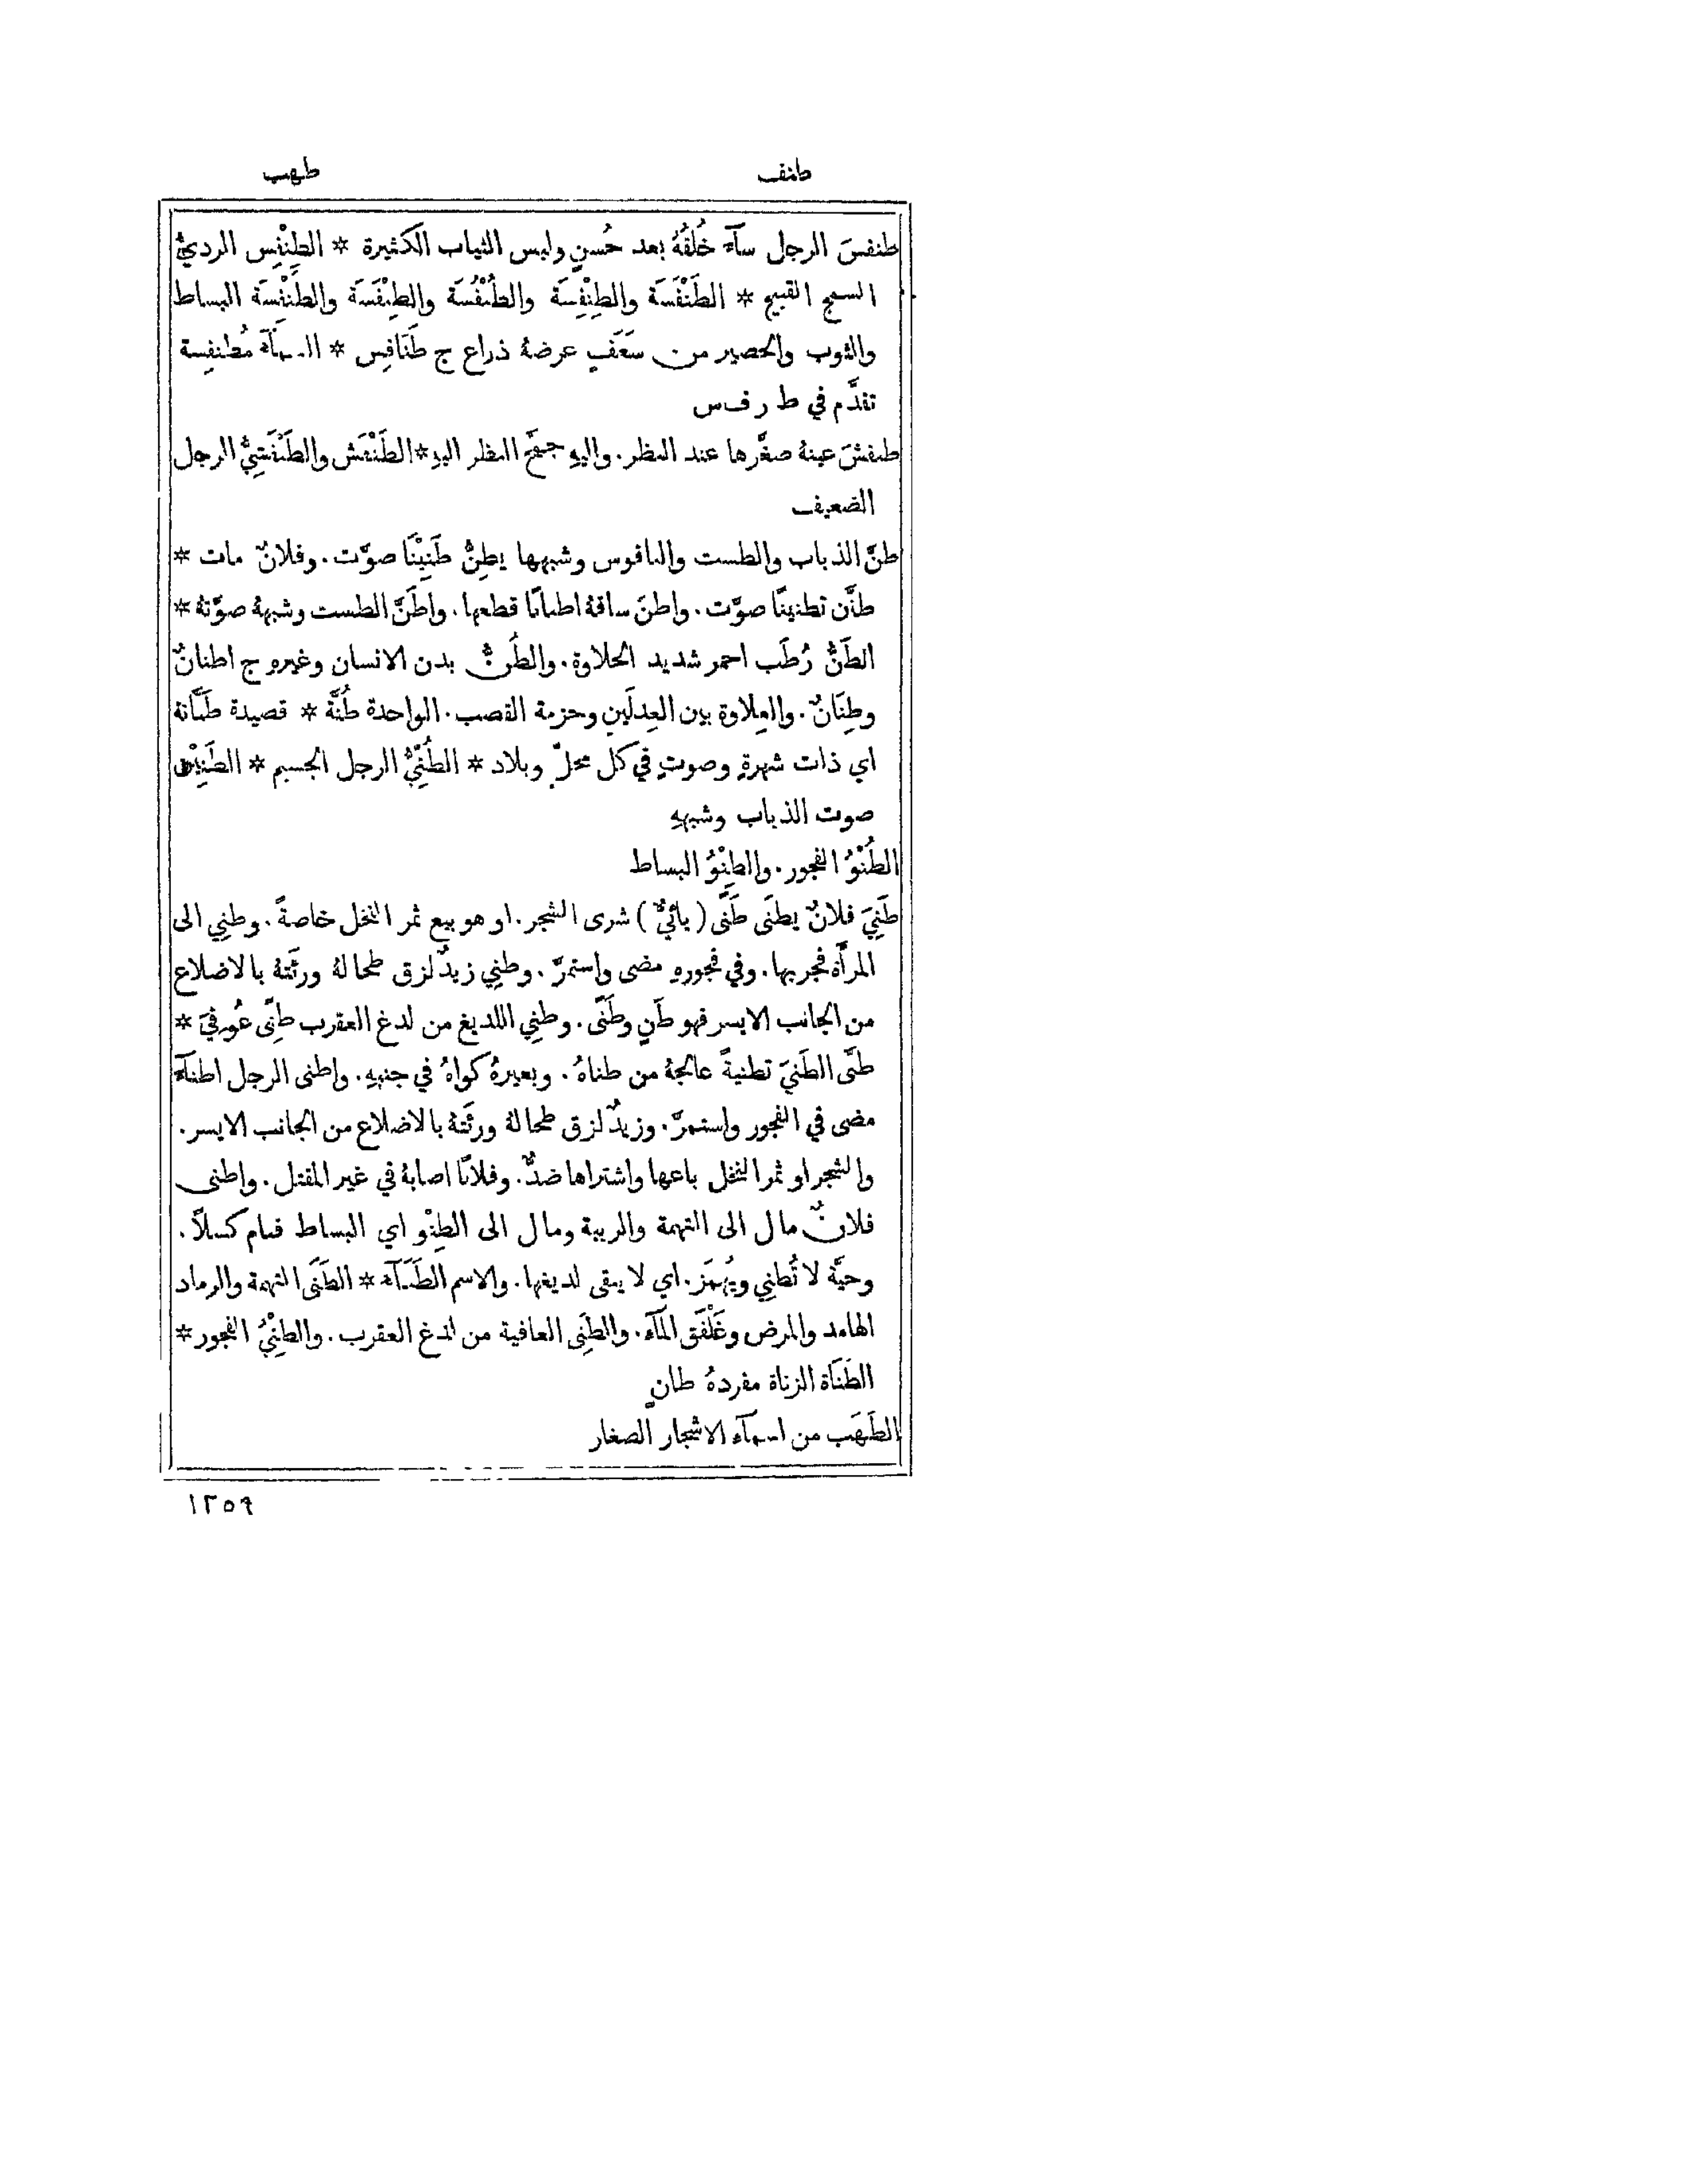 طنف طهب
طنفسَ الرجل سآءَ خُلقُهُ بعد حُسنٍ ولبس الثياب الكثيرة * الطِنْفِس الرديءُ
السمج القبيح * الطَنْفَسَة والطِنْفِسَة والطُنْفُسَة والطِنْفَسَة والطَنْفِسَة البساط
والثوب والحصير من سَعَفٍ عرضهُ ذراع ج طَنَافِس * السمآءُ مُطنفِسة
تقدَّم في ط ر ف س
طنفشَ عينهُ صغَّرها عند النظر. واليهِ جمَّح النظر اليهِ * الطَنْفَش والطَنْفَشِيُّ الرجل
الضعيف
طنَّ الذباب والطست والناقوس وشبهها يطِنُّ طَنِيْنًا صوَّت. وفلانٌ مات *
طنَّن تطنينًا صوَّت. واطنَ ساقهُ اطنانًا قطعها. واطَنَّ الطست وشبههُ صوَّتهُ *
الطَنُّ رُطَب احمر شديد الحلاوة. والطُنُّ بدن الانسان وغيرهِ ج اطنانٌ
وطِنَانٌ. والعِلاوة بين العِدلَينِ وحزمة القصب. الواحدة طُنَّة * قصيدة طنَّانة
اي ذات شهرةٍ وصوتٍ في كل محلٍّ وبلاد * الطُنِّيُّ الرجل الجسيم * الطَنِيْن
صوت الذباب وشبههِ
الطُنْوُ الفجور. والطِنْوُ البساط
طَنِيَ فلانٌ يطنَى طَنًى (يائيٌّ) شرى الشجر. او هو بيع ثمر النخل خاصةً. وطنِي الى
المرأَة فجر بها. وفي فجورهِ مضى واستمرَّ. وطنِي زيدٌ لزق طحالهُ ورئَتهُ بالاضلاع
من الجانب الايسر فهو طَنٍ وطَنًى. وطنِي اللديغ من لدغ العقرب طِنًى عُوفِيَ *
طنَّى الطَنيَ تطنيةً عالجهُ من طناهُ. وبعيرهُ كواهُ في جنبهِ. واطنى الرجل اطنآءً
مضى في الفجور واستمرَّ. وزيدٌ لزق طحالهُ ورئَتهُ بالاضلاع من الجانب الايسر.
والشجر او ثمر النخل باعها واشتراها ضدٌّ. وفلانًا اصابهُ في غير المقتل. واطنى
فلانٌ مال الى التهمة والريبة ومال الى الطِنْو اي البساط فنام كسلاً.
وحيَّة لا تُطنِي ويُهمَز. اي لا يبقى لديغها. والاسم الطَنَآءَة * الطَنَى التهمة والرماد
الهامد والمرض وغَلْفَق المآء. والطِنَى العافية من لدغ العقرب. والطِنْيُ الفجور *
الطَنَاة الزناة مفردهُ طانٍ
الطَهَب من اسمآءِ الاشجار الصغار
١٢٥٩